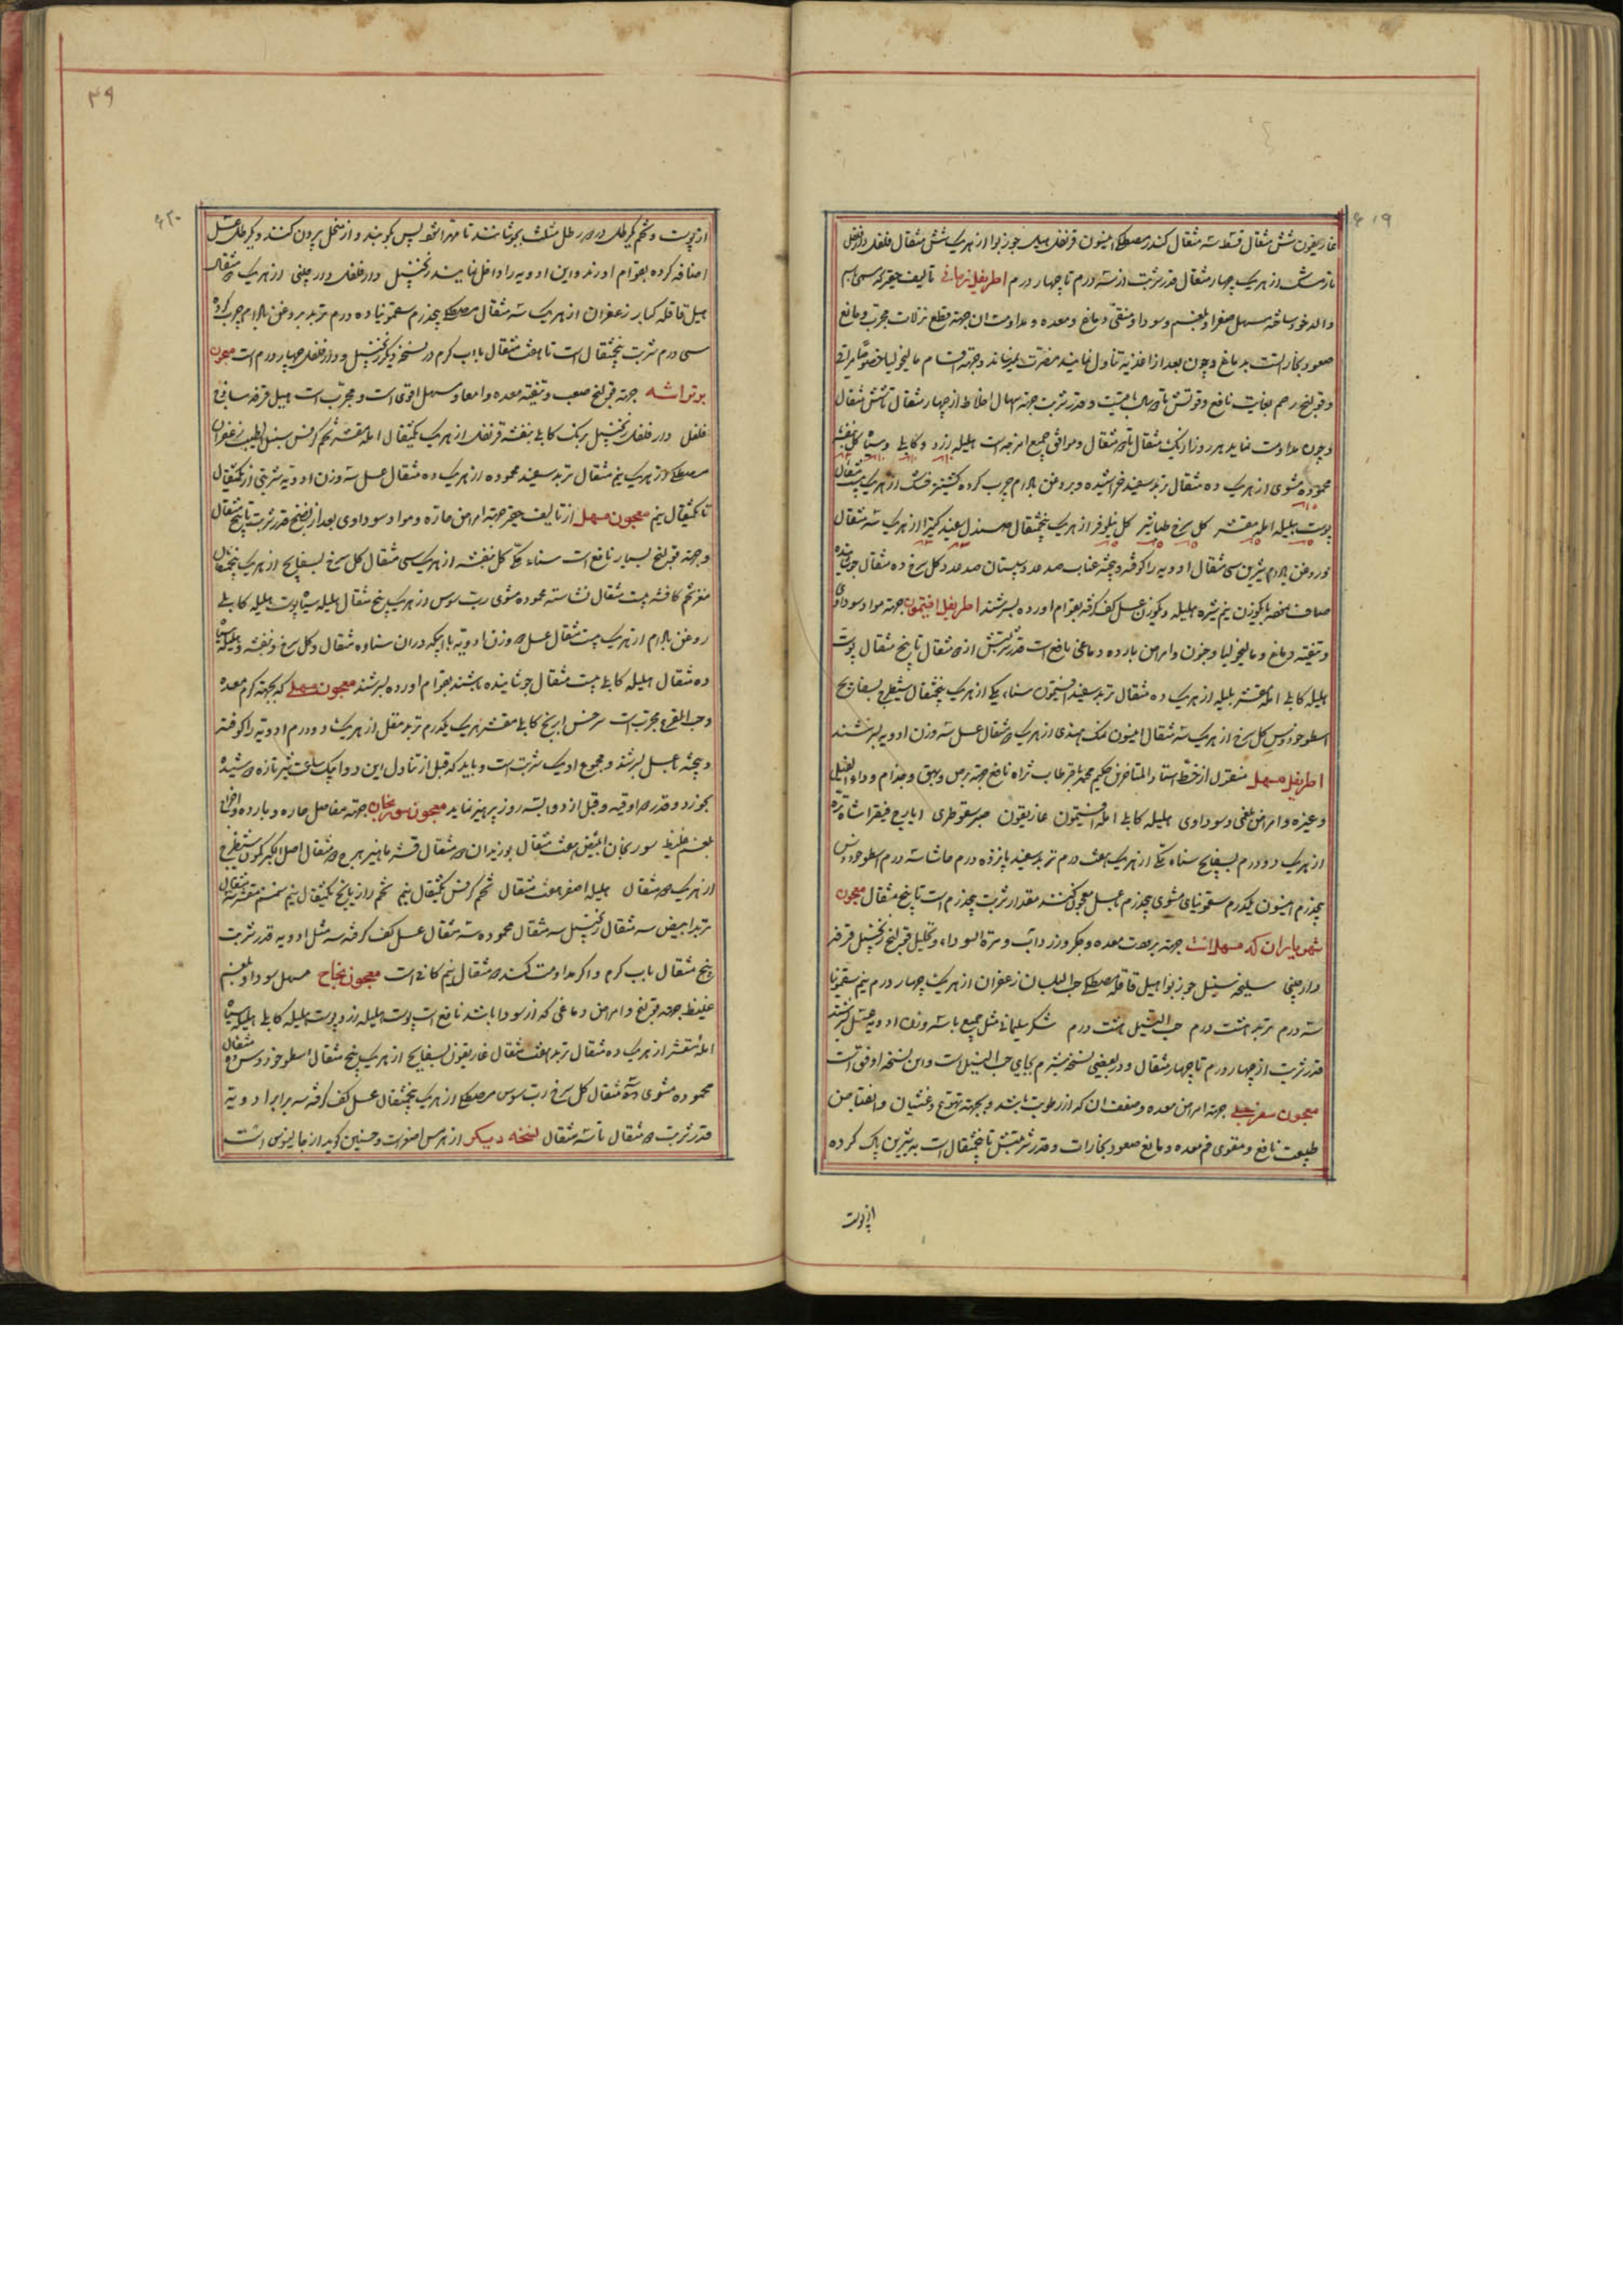 ۶۱۹
غاریقون شش مثقال قسط سه مثقال کندر مصطکی انیسون قرنفل هیل جوزبوا از هریک شش مثقال فلفل دارفلفل
نارمشک از هریک چهار مثقال قدر شربت از سه درم تا چهار درم اطریفل زمانی تالیف حقیر که بسمی باسم
والد خود ساخته مسهل صفرا و بلغم و سودا و منقی دماغ و معده و مداومت ان جهة قطع نزلات مجرب و مانع
صعود بخار است بدماغ و چون بعد از اغذیه تناول نمایند مضرت نمیرساند و جهة اقسام مالیخولیا خصوصا مراقی
و قولنج رحم بغایت نافع و قوتش تا دو سال باقیست و قدر شربت جهة اسهال اخلاط از چهار مثقال تا شش مثقال
و چون مداومت نماید هر روز از یک مثقال تا دو مثقال و موافق جمیع امزجه است هلیله زرد و کابلی و سیاه کل بنفشه
محموده مشوی از هریک ده مثقال تربد سفید خراشیده و بروغن بادام چرب کرده کشنیز خشک از هریک بیست مثقال
پوست بلیله امله مقشر کل سرخ طباشیر کل نیلوفر از هریک پنجمثقال صندل سفید کتیرا از هریک سه مثقال
و روغن بادام شیرین سی مثقال ادویه را کوفته و بیخته عناب صد عدد سپستان صد عدد کل سرخ ده مثقال جوشانیده
صاف نموده با یکوزن نیم شیره هلیله و یکوزن عسل کف کرفته بقوام اورده بسرشند اطریفل افتیمون جهة مواد سوداوی
و تنقیه دماغ و مالیخولیا و جنون و امراض بارده دماغی نافع است قدر شربتش از دو مثقال تا پنج مثقال پوست
هلیله کابلی امله مقشر بلیله از هریک ده مثقال تربد سفید افتیمون سناء مکی از هریک پنجمثقال شیطرج بسفایج
اسطوخودوس کل سرخ از هریک سه مثقال انیسون نمک هندی از هریک دو مثقال عسل سه وزن ادویه بسرشند
اطریفل مسهل منقول از خط استاد المتاخرین حکیم محمد باقر طاب ثراه نافع جهة برص و بهق و جذام و داء الفیل
و غیره و امراض بلغمی و سوداوی هلیله کابلی امله افتیمون غاریقون صبر سقوطری ایارج فیقرا شاه تره
از هریک دو درم بسفایج سناء مکی از هریک هفت درم تربد سفید پانزده درم حاشا سه درم اسطوخودوس
پنجدرم انیسون یکدرم سقمونیای مشوی پنجدرم بعسل معجون کنند مقدار شربت پنجدرم است تا پنج مثقال معجون
شهریاران که مسهل است جهة برودت معده و جکر و زرداب و مرة السوداء و تحلیل قولنج زنجبیل قرفه
دارچینی سلیخه سنبل جوزبوا هیل قاقله مصطکی حب البلسان زعفران از هریک چهار درم نیم سقمونیا
سه درم تربد هشت درم حب النیل هشت درم شکر سلیمانی مثل جمیع با سه وزن ادویه عسل بسرشند
قدر شربت از چهار درم تا چهار مثقال و در بعضی نسخه شبرم بجای حب النیل است و این نسخه اوفق است
معجون سفرجلی جهة امراض معده و ضعف ان که از رطوبت باشد و بجهة تهوع و غثیان و انقباض
طبیعت نافع و مقوی فم معده و مانع صعود بخارات و قدر شربتش تا پنجمثقال است به شیرین پاک کرده
از پوست
۳۹
۶۲۰
از پوست و تخم یکرطل در دو رطل مثلث بجوشانند تا مهرا شود پس بکوبند و از منخل بیرون کنند و یکرطل عسل
اضافه کرده بقوام اورند و این ادویه را داخل نمایند زنجبیل دارفلفل دارچینی از هریک دو مثقال
هیل قاقله کبار زعفران از هریک سه مثقال مصطکی پنجدرم سقمونیا ده درم تربد بروغن بادام چرب کرده
سی درم شربت پنجمثقال است تا هفت مثقال با اب کرم در نسخه دیکر زنجبیل و دارفلفل چهار درم است معجون
بوتراشه جهة قولنج صعب و تنقیه معده و امعا و مسهل اقوی است و مجرب است هیل قرفه ساذج
فلفل دارفلفل زنجبیل برنک کابلی بنفشه قرنفل از هریک یکمثقال امله مقشر تخم کرفس سنبل الطیب زعفران
مصطکی از هریک نیم مثقال تربد سفید محموده از هریک ده مثقال عسل سه وزن ادویه شربتی از یکمثقال
تا یکمثقال نیم معجون مسهل از تالیف حقیر جهة امراض حاره و مواد سوداوی بعد از نضج قدر شربت تا پنج مثقال
و جهة قولنج بسیار نافع است سناء مکی کل بنفشه از هریک سی مثقال کل سرخ بسفایج از هریک پنجمثقال
مغز تخم کافشه بیست مثقال نشاسته محموده مشوی رب سوس از هریک پنج مثقال هلیله سیاه پوست هلیله کابلی
روغن بادام از هریک بیست مثقال عسل دو وزن ادویه با ابیکه دران سنا و ده مثقال و کل سرخ و بنفشه و هلیله سیاه
ده مثقال هلیله کابلی بیست مثقال جوشانیده باشند بقوام اورده بسرشند معجون مسهلی که بجهة کرم معده
و حب القرع مجرب است سرخس ابرنج کابلی مقشر هریک یکدرم تربد مقل از هریک دو درم ادویه را کوفته
و بیخته با عسل بسرشند و مجموع او یک شربت است و باید که قبل از تناول این دوا بیک ساعت شیر تازه دوشیده
بخورد و قدر دو اوقیه و قبل از دوا بسه روز پرهیز نماید معجون سورنجان جهة مفاصل حاره و بارده و اخراج
بلغم غلیظ سورنجان ابیض هفت مثقال بوزیدان دو مثقال قشر ماهیزهرج دو مثقال اصل الکبر کمون شیطرج
از هریک دو مثقال هلیله اصفر هفت مثقال تخم کرفس یکمثقال نیم تخم رازیانج یکمثقال نیم سمسم مقشر سه مثقال
تربد ابیض سه مثقال زنجبیل سه مثقال محموده سه مثقال عسل کف کرفته سه مثل ادویه قدر شربت
پنج مثقال باب کرم و اکر مداومت کنند دو مثقال نیم کافی است معجون نجاح مسهل سودا و بلغم
غلیظ جهة قولنج و امراض دماغی که از سودا باشد نافع است پوست هلیله زرد پوست هلیله کابلی هلیله سیاه
امله مقشر از هریک ده مثقال تربد هفت مثقال غاریقون بسفایج از هریک پنج مثقال اسطوخودوس ده مثقال
محموده مشوی سه مثقال کل سرخ رب سوس مصطکی از هریک پنجمثقال عسل کف کرفته سه برابر ادویه
قدر شربت دو مثقال تا سه مثقال نسخه دیکر از هرمس است و حنین کوید از جالینوس است